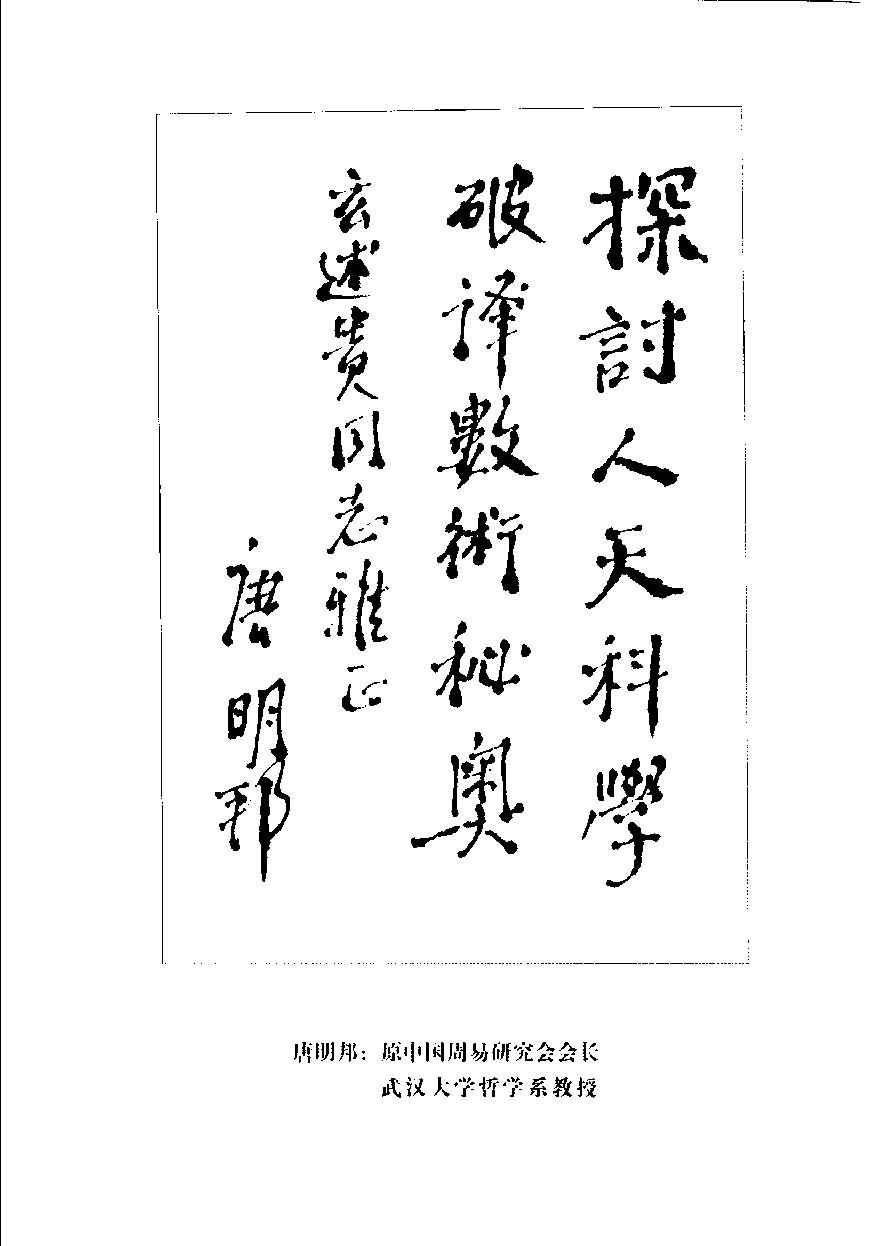 探討人天科學
破譯數術秘奧
玄述贵同志雅正
唐明邦
唐明邦：原中国周易研究会会长
武汉大学哲学系教授